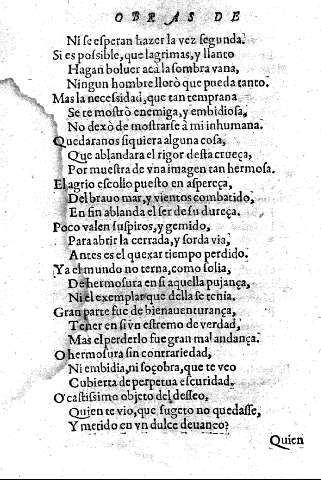 OBRAS DE
Ni se esperan hazer la vez segunda.
Si es possible, que lagrimas, y llanto
Hagan boluer acà la sombra vana,
Ningun hombre llorò que pueda tanto.
Mas la necessidad, que tan temprana
Se te mostrò enemiga, y embidiosa,
No dexò de mostrarse à mi inhumana.
Quedaranos siquiera alguna cosa,
Que ablandara el rigor desta crueça,
Por muestra de vna imagen tan hermosa.
El agrio escollo puesto en aspereça,
Del brauo mar, y vientos combatido,
En fin ablanda el ser de su dureça.
Poco valen suspiros, y gemido,
Para abrir la cerrada, y sorda via,
Antes es el quexar tiempo perdido.
Ya el mundo no terna, como solia,
De hermosura en si aquella pujança,
Ni el exemplar que della se tenia.
Gran parte fue de bienauenturança,
Tener en si vn estremo de verdad,
Mas el perderlo fue gran malandança.
O hermosura sin contrariedad,
Ni embidia, ni soçobra, que te veo
Cubierta de perpetua escuridad.
O castissimo objeto del desseo,
Quien te vio, que sugeto no quedasse,
Y metido en vn dulce deuaneo?
Quien